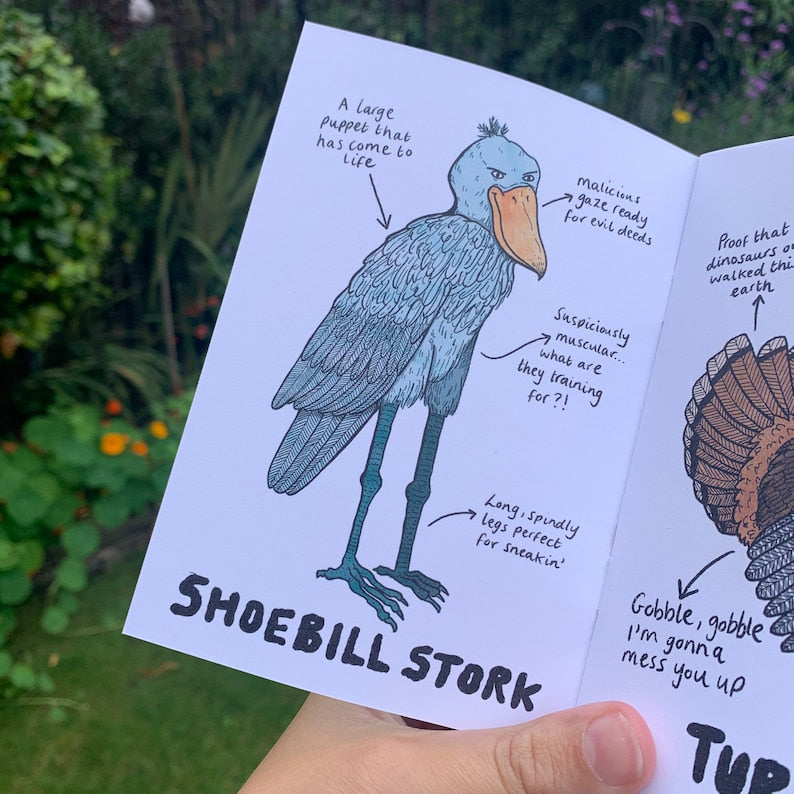 A large
puppet that
has come to
life
malicious
gaze ready
for evil deeds
Suspiciously
muscular...
what are
they training
for?!
Long, spindly
legs perfect
for sneakin'
SHOEBILL STORK
Proof that
dinosaurs
walked
earth
Gobble, gobble
I'm gonna
mess you up